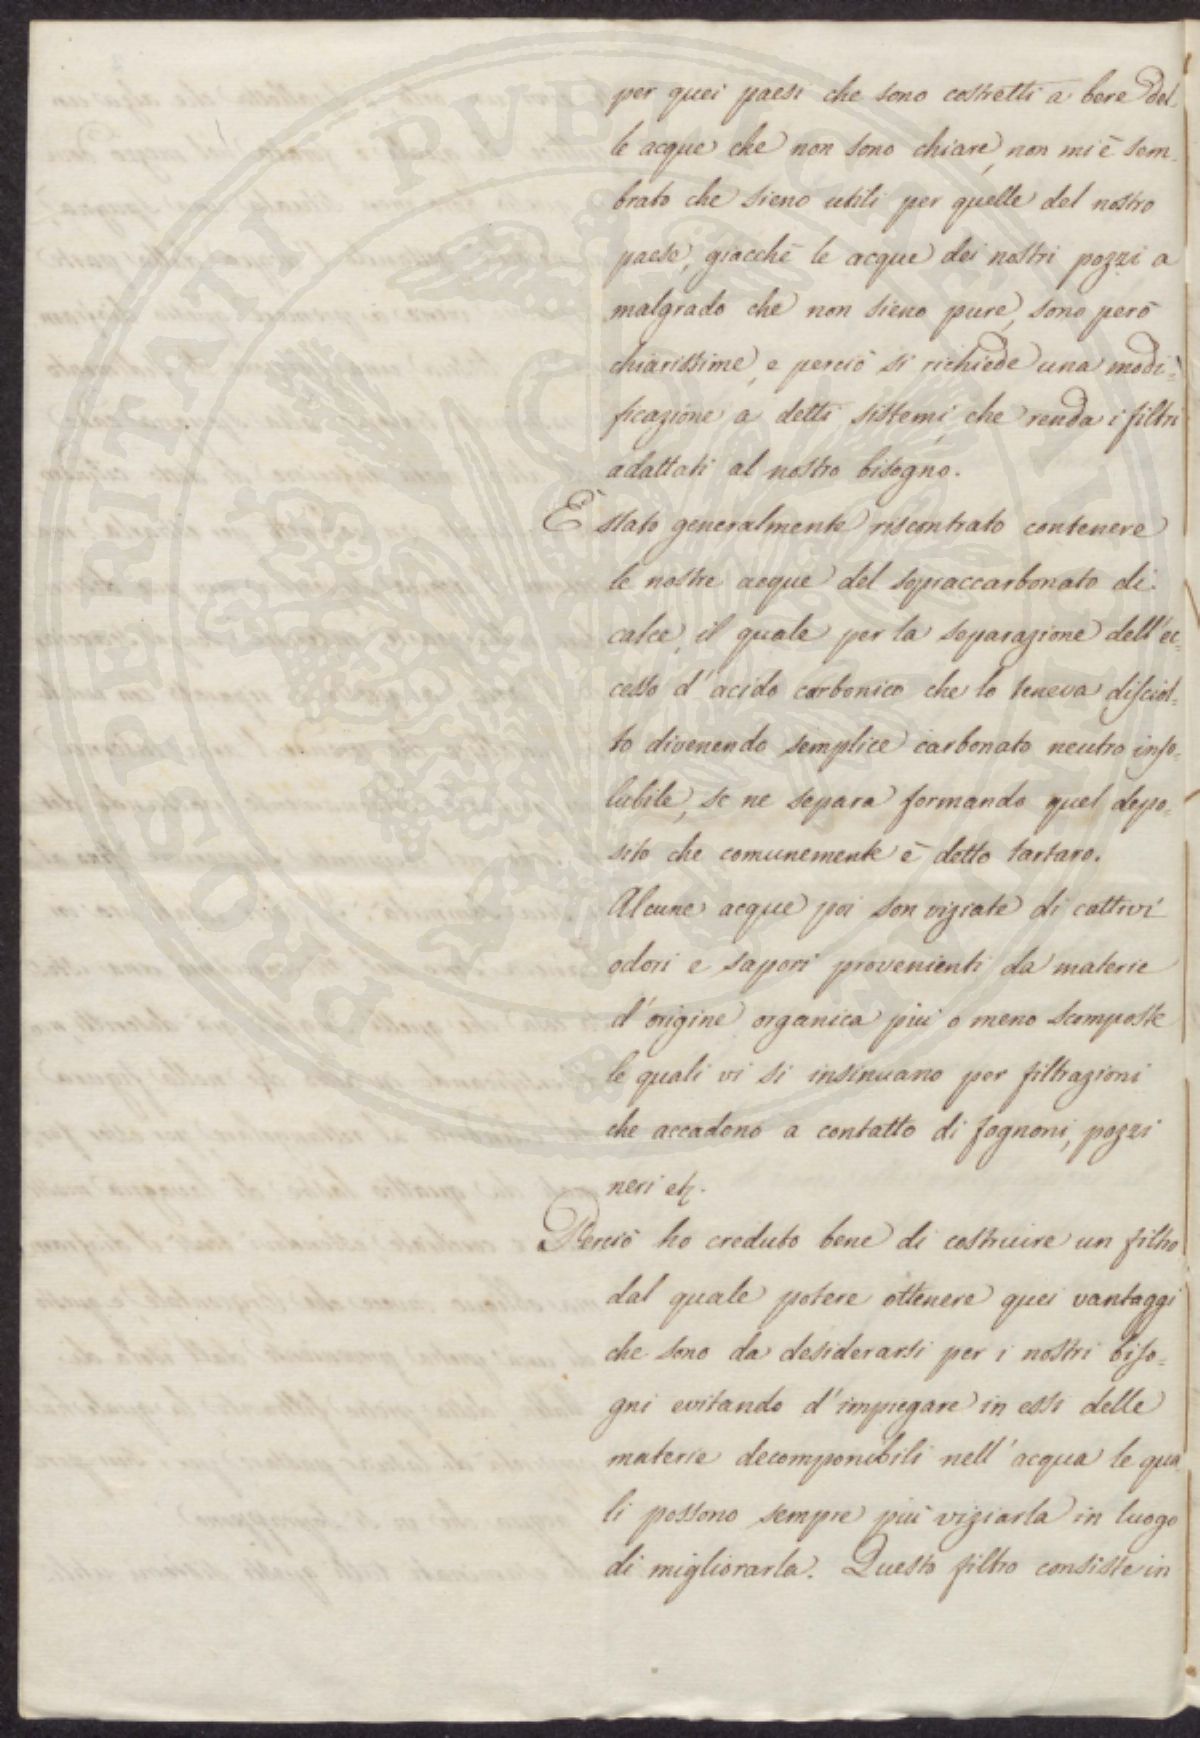 per quei paesi che sono costretti a bere del
le acque che non sono chiare, non mi è sem-
brato che sieno utili per quelle del nostro
paese, giacchè le acque dei nostri pozzi a
malgrado che non sieno pure, sono però
chiarissime, e perciò si richiede una modi=
ficazione a detti sistemi, che renda i filtri
adattati al nostro bisogno.
È stato generalmente riscontrato contenere
le nostre acque del sopraccarbonato di
calce, il quale per la separazione dell'ec-
cesso d'acido carbonico che lo teneva disciol-
to divenendo semplice carbonato neutro inso-
lubile, se ne separa formando quel depo-
sito che comunemente è detto tartaro.
Alcune acque poi son viziate di cattivi
odori e sapori provenienti da materie
d'origine organica più o meno scomposte
le quali vi si insinuano per filtrazioni
che accadono a contatto di fognoni, pozzi
neri etc.
Perciò ho creduto bene di costruire un filtro
dal quale potere ottenere quei vantaggi
che sono da desiderarsi per i nostri biso=
gni evitando d'impiegare in essi delle
materie decomponibili nell'acqua le qua
li possono sempre più viziarla in luogo
di migliorarla. Questo filtro consiste in
PROSPERITATI PVBLICAE